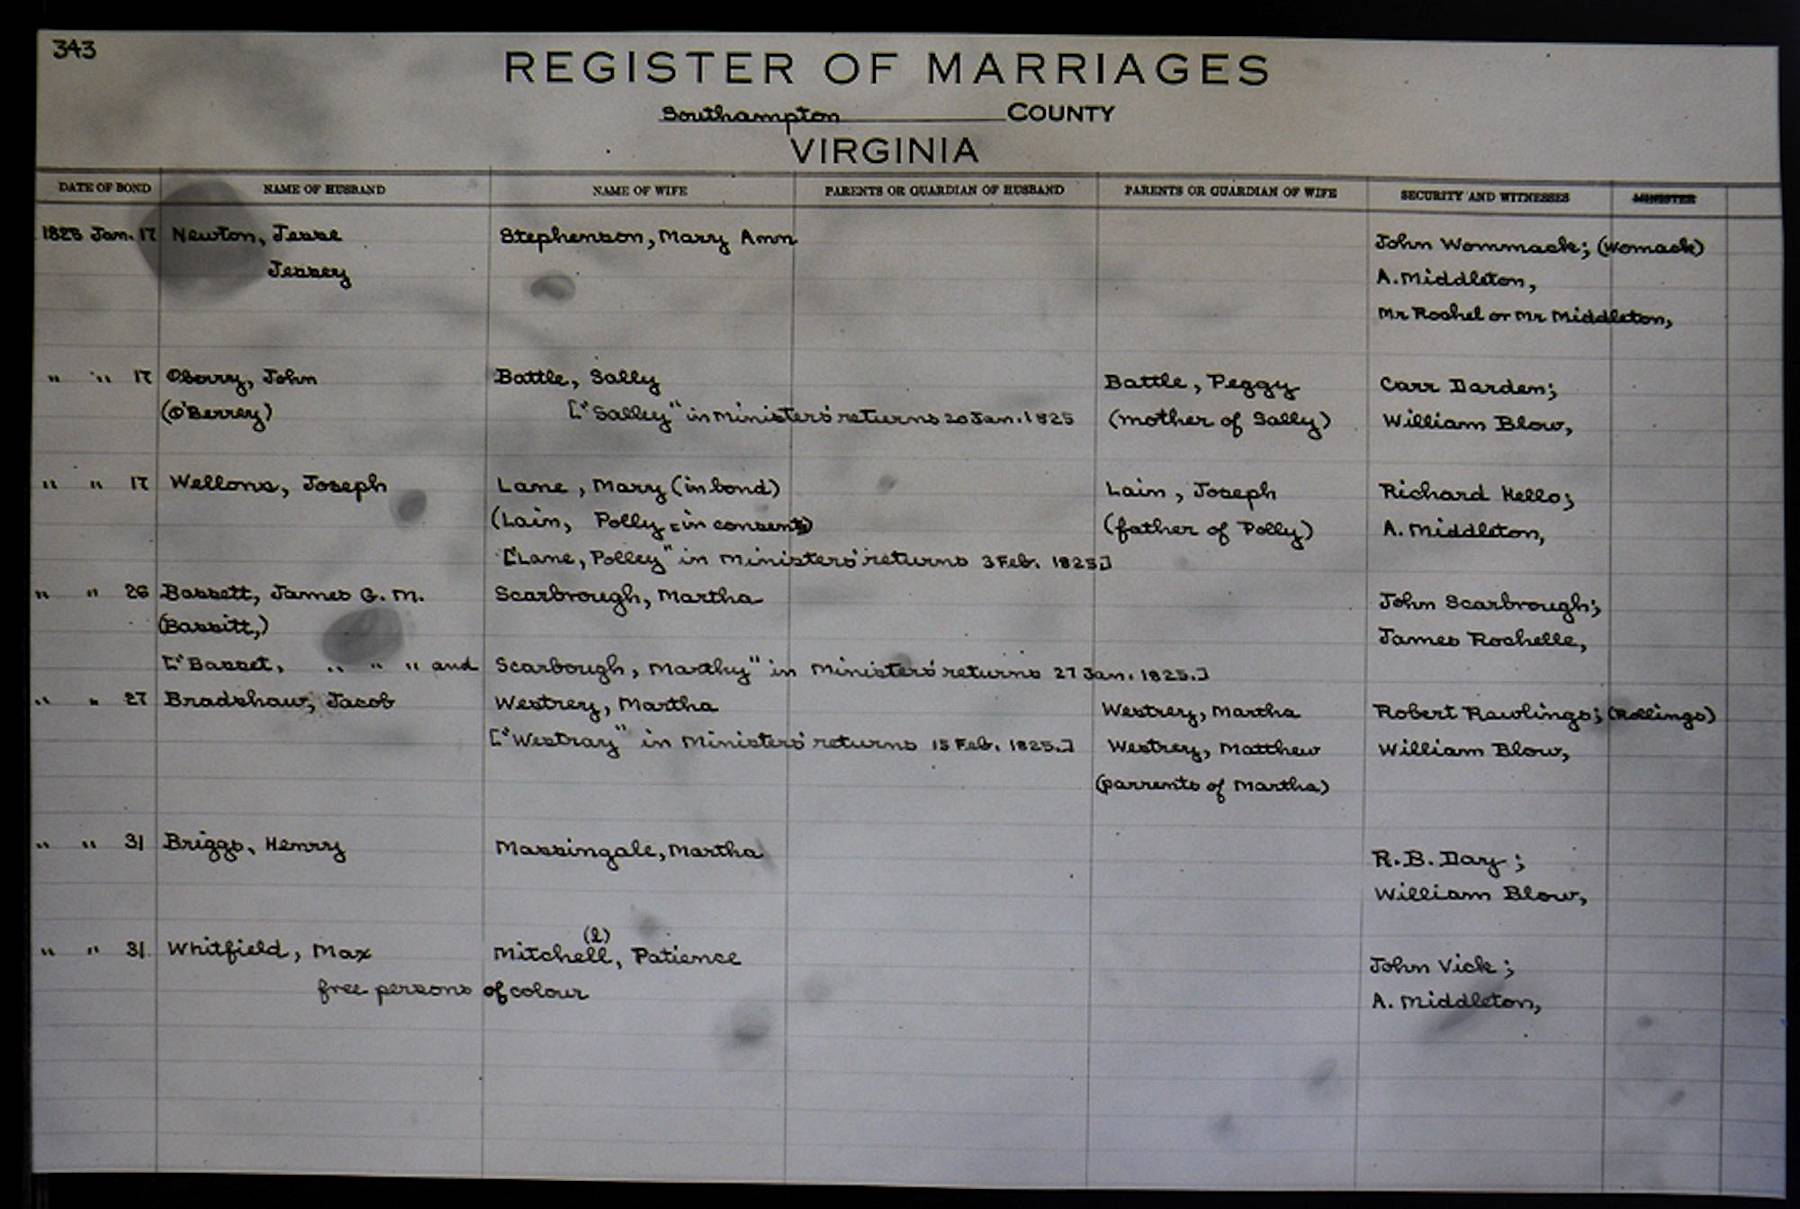 343
REGISTER OF MARRIAGES
Southampton COUNTY
VIRGINIA
DATE OF BOND NAME OF HUSBAND NAME OF WIFE PARENTS OR GUARDIAN OF HUSBAND PARENTS OR GUARDIAN OF WIFE SECURITY AND WITNESSES MINISTER
1825 Jan. 17 Newton, Jesse Stephenson, Mary Ann John Wommack; (Womack)
Jessey A. Middleton,
Mr Rochel or Mr Middleton,
" " 17 Oberry, John Battle, Sally Battle, Peggy Carr Darden;
(O'Berrey) ["Salley" in Ministers' returns 20 Jan. 1825 (mother of Sally) William Blow,
" " 17 Wellons, Joseph Lane, Mary (in bond) Lain, Joseph Richard Kello;
(Lain, Polly = in consent) (father of Polly) A. Middleton,
["Lane, Polley" in Ministers' returns 3 Feb. 1825]
" " 26 Bassett, James G. M. Scarbrough, Martha John Scarbrough;
(Bassitt,) James Rochelle,
["Basset, " " " and Scarbough, Marthy" in Ministers' returns 27 Jan. 1825.]
" " 27 Bradshaw, Jacob Westrey, Martha Westrey, Martha Robert Rawlings; (Rollings)
["Westray" in Ministers' returns 15 Feb. 1825.] Westrey, Matthew William Blow,
(parrents of Martha)
" " 31 Briggs, Henry Massingale, Martha R. B. Day;
William Blow,
(l)
" " 31 Whitfield, Max Mitchell, Patience John Vick;
free persons of colour A. Middleton,